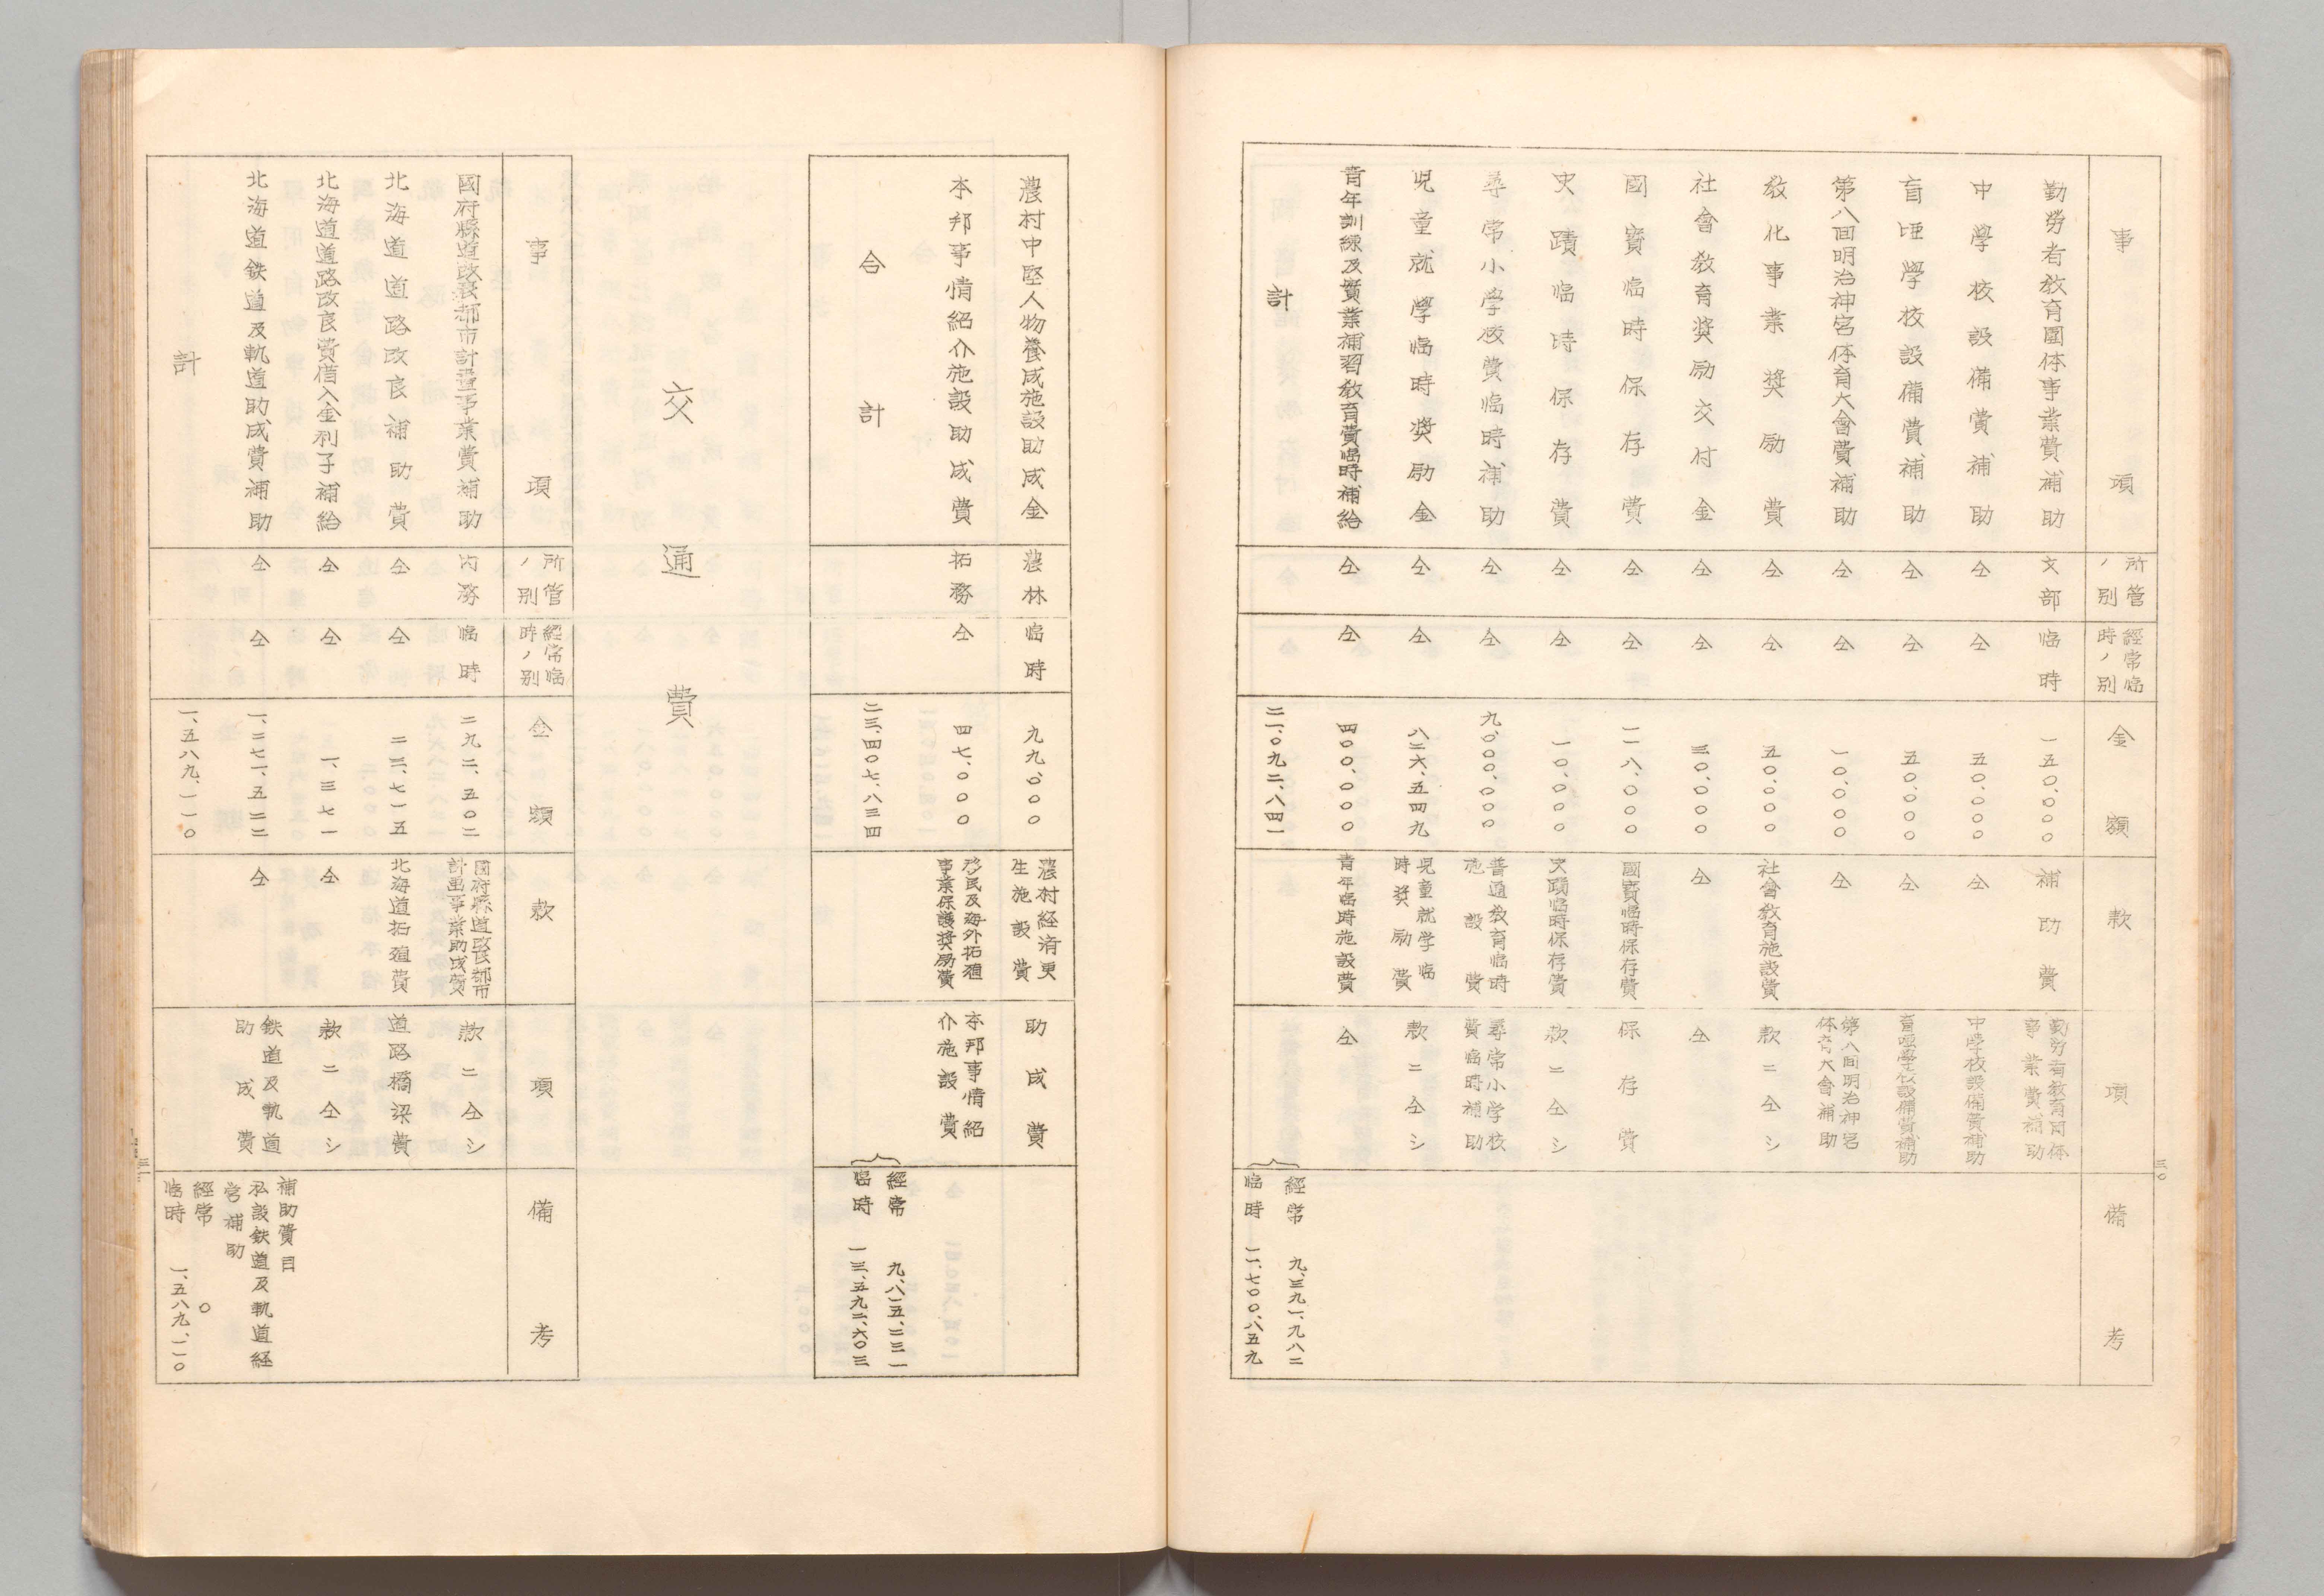 三〇
事項 所管ノ別 經常臨時ノ別 金額 款 項 備考
勤勞者教育團体事業費補助 文部 臨時 一五〇、〇〇〇 補助費 勤労者教育団体事業費補助
中學校設備費補助 仝 仝 五〇、〇〇〇 仝 中學校設備費補助
盲唖學校設備費補助 仝 仝 五〇、〇〇〇 仝 盲唖學校設備費補助
第八回明治神宮体育大會費補助 仝 仝 一〇、〇〇〇 仝 第八回明治神宮体育大會補助
教化事業奬励費 仝 仝 五〇、〇〇〇 社會教育施設費 款ニ仝シ
社會教育奬励交付金 仝 仝 三〇、〇〇〇 仝 仝
國寶臨時保存費 仝 仝 一一八、〇〇〇 國寶臨時保存費 保存費
史蹟臨時保存費 仝 仝 一〇、〇〇〇 史蹟臨時保存費 款ニ仝シ
尋常小學校費臨時補助 仝 仝 九、〇〇〇、〇〇〇 普通教育臨時施設費 尋常小学校費臨時補助
児童就學臨時奬励金 仝 仝 八二六、五四九 児童就学臨時奬励費 款ニ仝シ
青年訓練及實業補習教育費臨時補給 仝 仝 四〇〇、〇〇〇 青年臨時施設費 仝
計 二一、〇九二、八四一
經常 九、三九一、九八二
臨時 一一、七〇〇、八五九
農村中堅人物養成施設助成金 農林 臨時 九九、〇〇〇 農村経済更生施設費 助成費
本邦事情紹介施設助成費 拓務 仝 四七、〇〇〇 移民及海外拓殖事業保護奬励費 本邦事情紹介施設費
合計 二三、四〇七、八三四
經常 九、八一五、二三一
臨時 一三、五九二、六〇三
交通費
事項 所管ノ別 經常臨時ノ別 金額 款 項 備考
國府縣道改良都市計畫事業費補助 内務 臨時 二九二、五〇二 國府縣道改良都市計畫事業助成費 款ニ仝シ
北海道道路改良補助費 仝 仝 二三、七一五 北海道拓殖費 道路橋梁費
北海道道路改良費借入金利子補給 仝 仝 一、三七一 仝 款ニ仝シ
北海道鉄道及軌道助成費補助 仝 仝 一、二七一、五二二 仝 鉄道及軌道助成費
補助費目
私設鉄道及軌道経営補助
計 一、五八九、一一〇
經常 〇
臨時 一、五八九、一一〇
三一